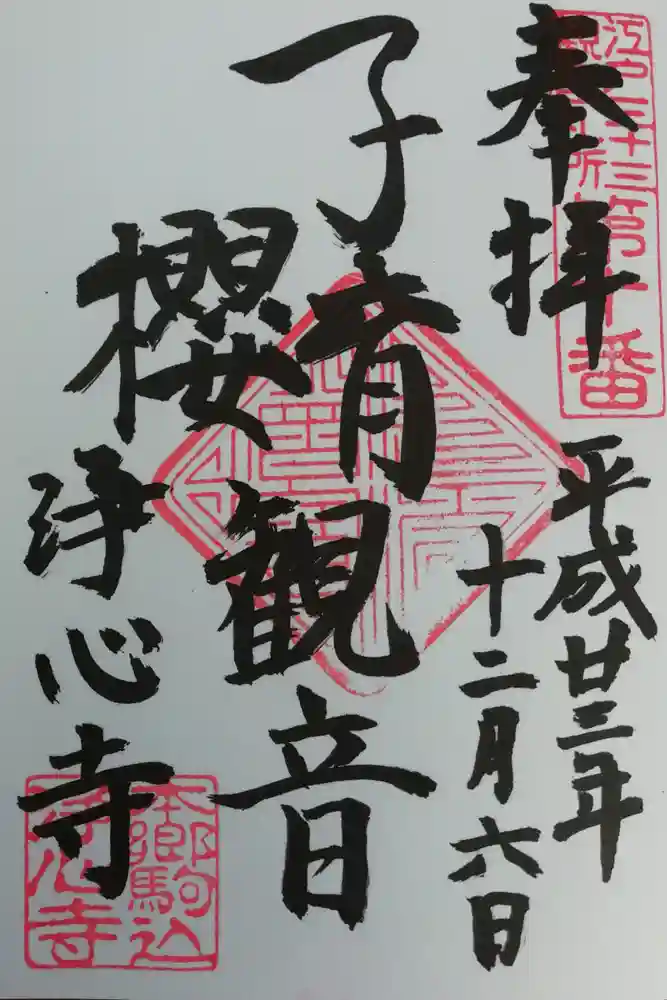 江戸三十三
観音札所第十番
奉拝
平成廿三年
十二月六日
子育観音
櫻
浄心寺
本郷駒込
浄心寺